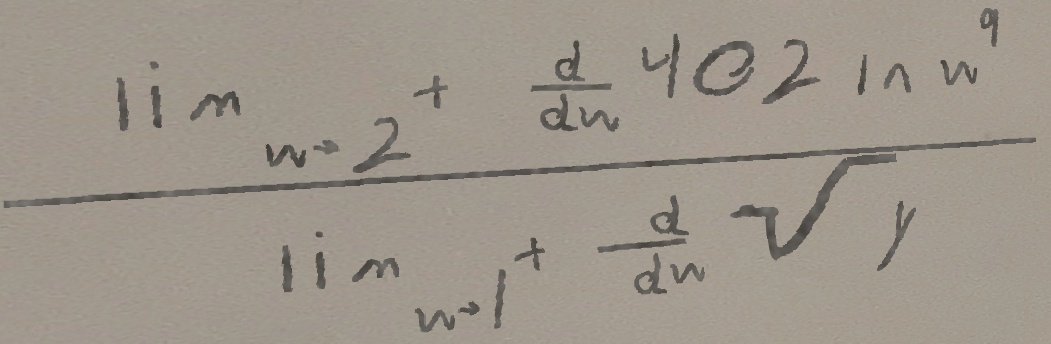 lim w→2⁺ d/dw 402 ln w⁹
lim w→1⁺ d/dw √y